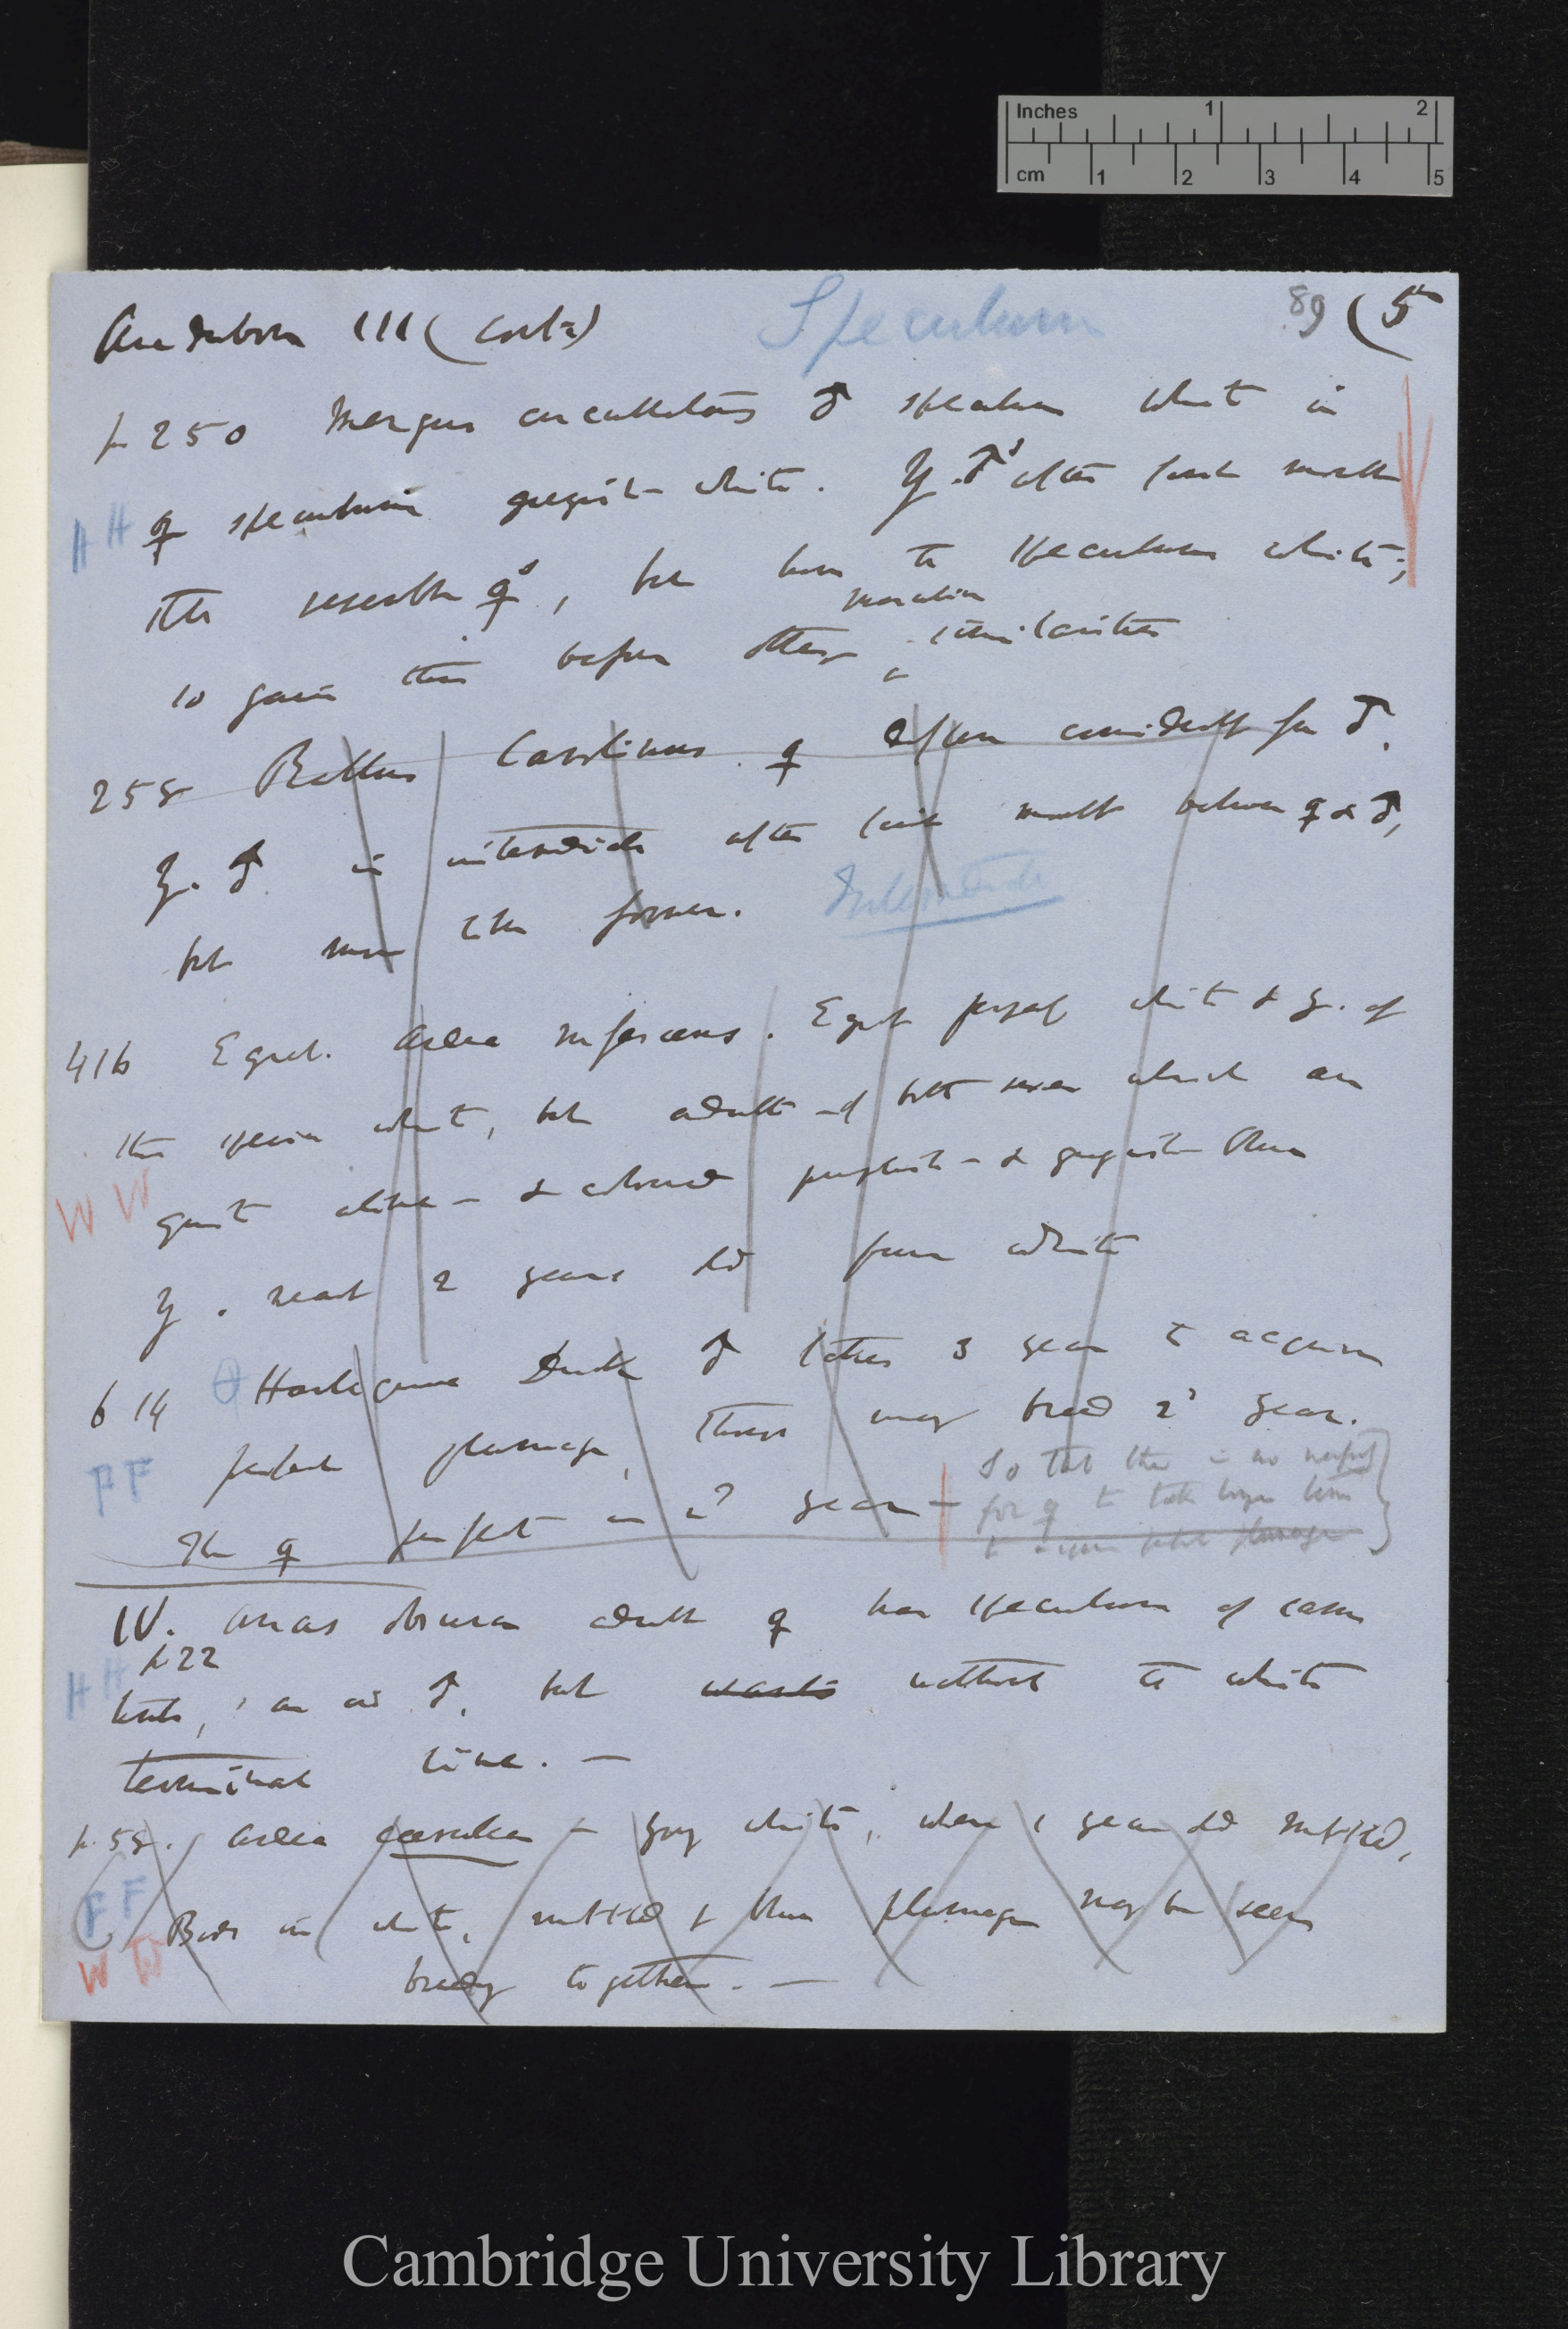 Inches 1 2
cm 1 2 3 4 5
Audubon III (Contd) Speculum 89 (5
p 250 Mergus cucullatus ♂ speculum white in
HH ♀ speculum greyish-white. Y. ♂s after first moult
still resemble ♀s, but have the speculum white;
so gain this before other masculine
258 Rallus ♀ differ from ♂.
Y. ♂ is intermediate after first moult between ♀ & ♂,
but more like former. Intermediate
416 Egret. Ardea rufescens. Egret white & Y. of
this species white, but adults of both sexes which are
WW quite alike — & coloured purplish- & greyish blue
Y. nearly 2 years old pure white
614 Harlequin Duck ♂ takes 3 years to acquire
FF perfect plumage, though may breed 2d year.
So that there is no
for ♀ to take longer time
to acquire perfect plumage
The ♀ perfect in 2d year —
IV. Anas obscura adult ♀ has speculum of same
p 22
HH tints, as in ♂, but wants without the white
terminal line. —
p. 58. Ardea caerulea — Young white, when 1 year old mottled,
FF Birds in white, mottled & blue plumage may be seen
WW breeding together. —
Cambridge University Library